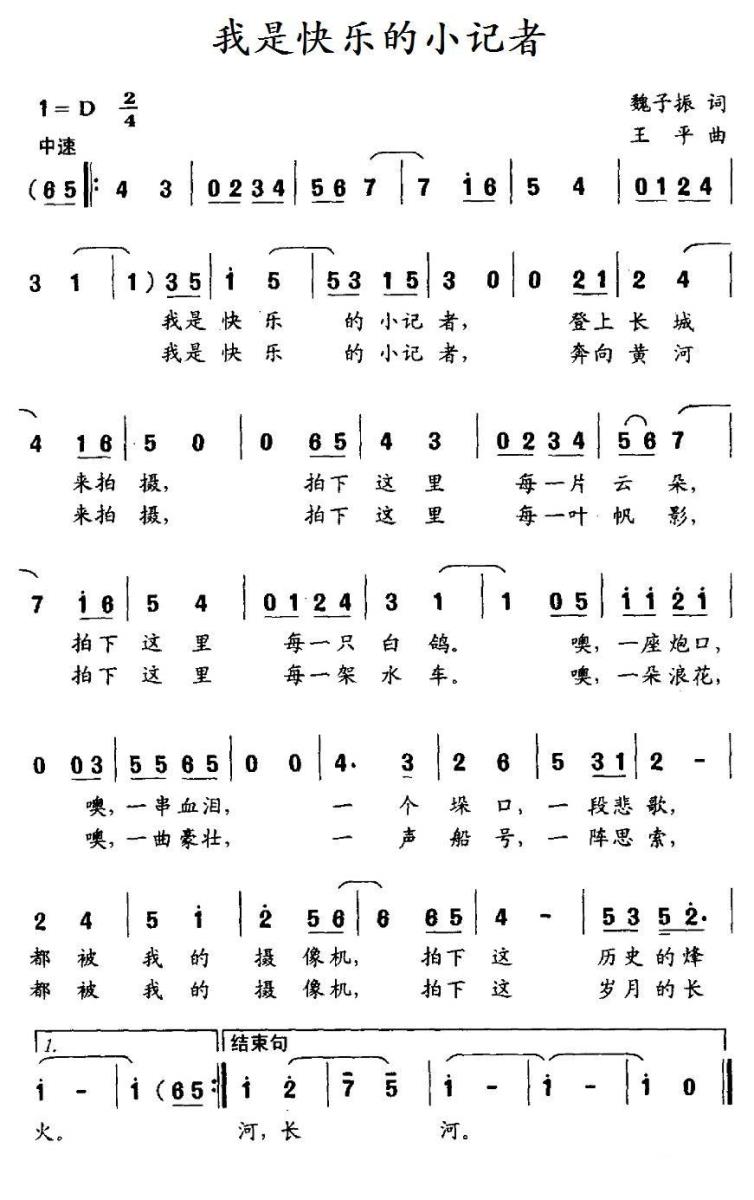 我是快乐的小记者
1=D 2/4
魏子振 词
中速
王 平 曲
(6 5 ‖: 4 3 | 0 2 3 4 | 5 6 7 | 7 i 6 | 5 4 | 0 1 2 4 |
3 1 | 1 ) 3 5 | i 5 | 5 3 1 5 | 3 0 | 0 2 1 | 2 4 |
我是 快 乐 的 小记 者, 登上 长 城
我是 快 乐 的 小记 者, 奔向 黄 河
4 1 6 | 5 0 | 0 6 5 | 4 3 | 0 2 3 4 | 5 6 7 |
来拍 摄, 拍下 这 里 每一片 云 朵,
来拍 摄, 拍下 这 里 每一叶 帆 影,
7 i 6 | 5 4 | 0 1 2 4 | 3 1 | 1 0 5 | i i 2 i |
拍下 这 里 每一只 白 鸽。 噢, 一座炮口,
拍下 这 里 每一架 水 车。 噢, 一朵浪花,
0 0 3 | 5 5 6 5 | 0 0 | 4· 3 | 2 6 | 5 3 1 | 2 - |
噢, 一串血泪, 一 个 垛 口, 一 段悲 歌,
噢, 一曲豪壮, 一 声 船 号, 一 阵思 索,
2 4 | 5 i | 2 5 6 | 6 6 5 | 4 - | 5 3 5 2· |
都 被 我 的 摄 像机, 拍下 这 历史的烽
都 被 我 的 摄 像机, 拍下 这 岁月的长
1. 结束句
i - | i (6 5 :‖ i 2 | 7 5 | i - | i - | i 0 ‖
火。 河, 长 河。